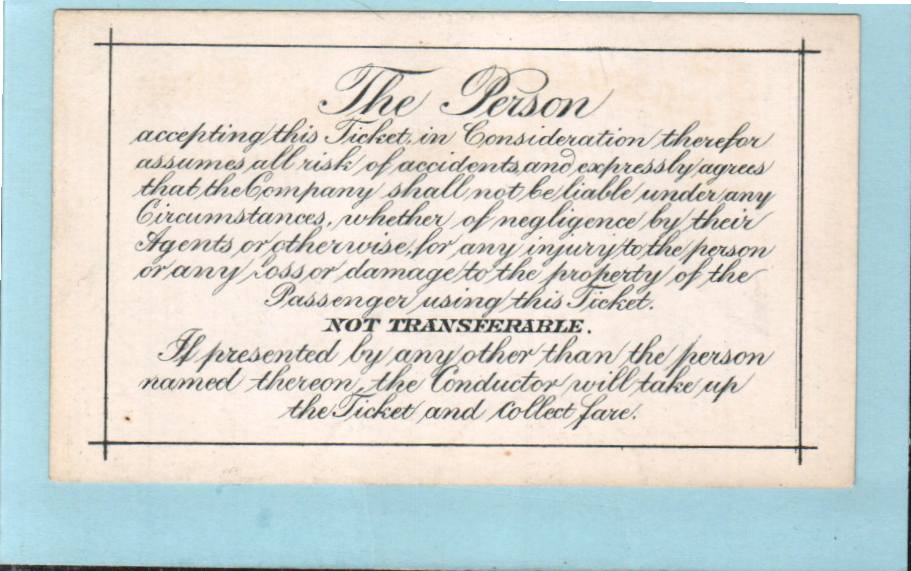 The Person
accepting this Ticket, in Consideration therefor
assumes all risk of accidents, and expressly agrees
that the Company shall not be liable under any
Circumstances, whether of negligence by their
Agents or otherwise, for any injury to the person
or any Loss or damage to the property of the
Passenger using this Ticket.
NOT TRANSFERABLE.
If presented by any other than the person
named thereon, the Conductor will take up
the Ticket and Collect fare.